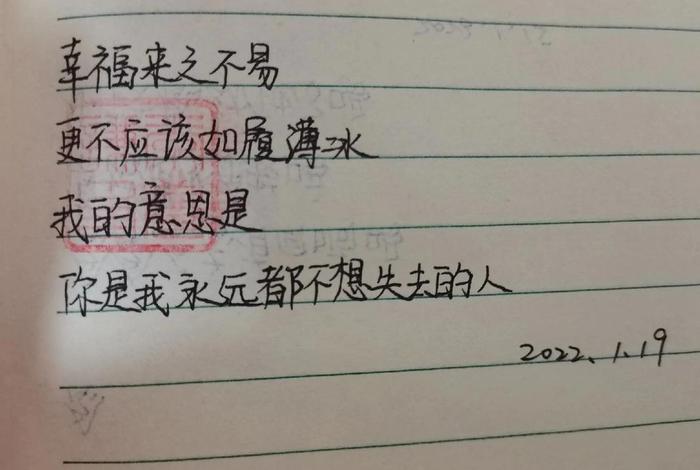 幸福来之不易
更不应该如履薄冰
我的意思是
你是我永远都不想失去的人
2022.1.19